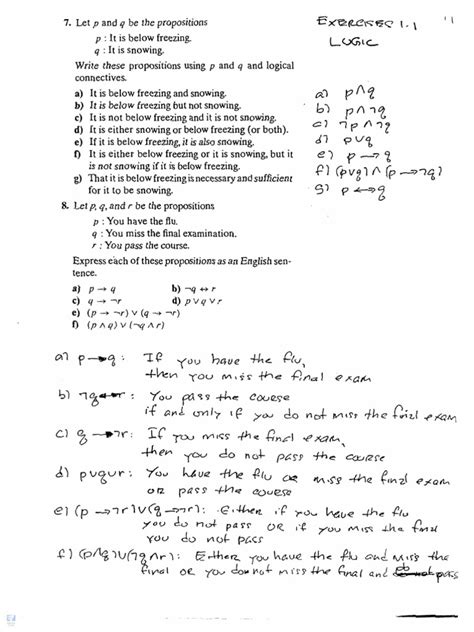 EXERCISES 1.1
LOGIC
7. Let p and q be the propositions
p : It is below freezing.
q : It is snowing.
Write these propositions using p and q and logical
connectives.
a) It is below freezing and snowing.
b) It is below freezing but not snowing.
c) It is not below freezing and it is not snowing.
d) It is either snowing or below freezing (or both).
e) If it is below freezing, it is also snowing.
f) It is either below freezing or it is snowing, but it
is not snowing if it is below freezing.
g) That it is below freezing is necessary and sufficient
for it to be snowing.
a) p∧q
b) p∧¬q
c) ¬p∧¬q
d) p∨q
e) p→q
f) (p∨q)∧(p→¬q)
g) p↔q
8. Let p, q, and r be the propositions
p : You have the flu.
q : You miss the final examination.
r : You pass the course.
Express each of these propositions as an English sen-
tence.
a) p → q b) ¬q ↔ r
c) q → ¬r d) p ∨ q ∨ r
e) (p → ¬r) ∨ (q → ¬r)
f) (p ∧ q) ∨ (¬q ∧ r)
a) p→q: If you have the flu,
then you miss the final exam
b) ¬q↔r: You pass the course
if and only if you do not miss the final exam
c) q→¬r: If you miss the final exam,
then you do not pass the course
d) p∨q∨r: You have the flu or miss the final exam
or pass the course
e) (p→¬r)∨(q→¬r): Either if you have the flu
you do not pass or if you miss the final
you do not pass
f) (p∧q)∨(¬q∧r): Either you have the flu and miss the
final or you do not miss the final and pass